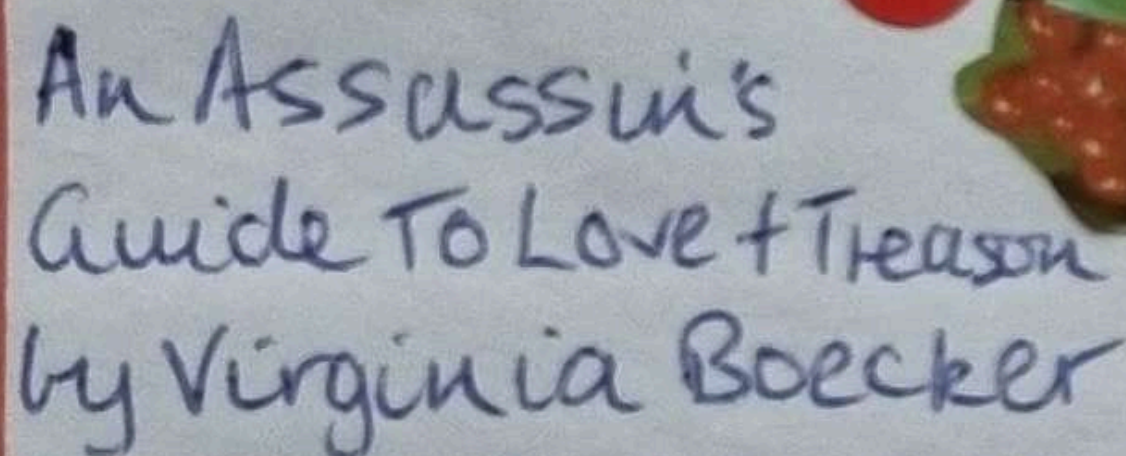 An Assassin's
Guide To Love + Treason
by Virginia Boecker